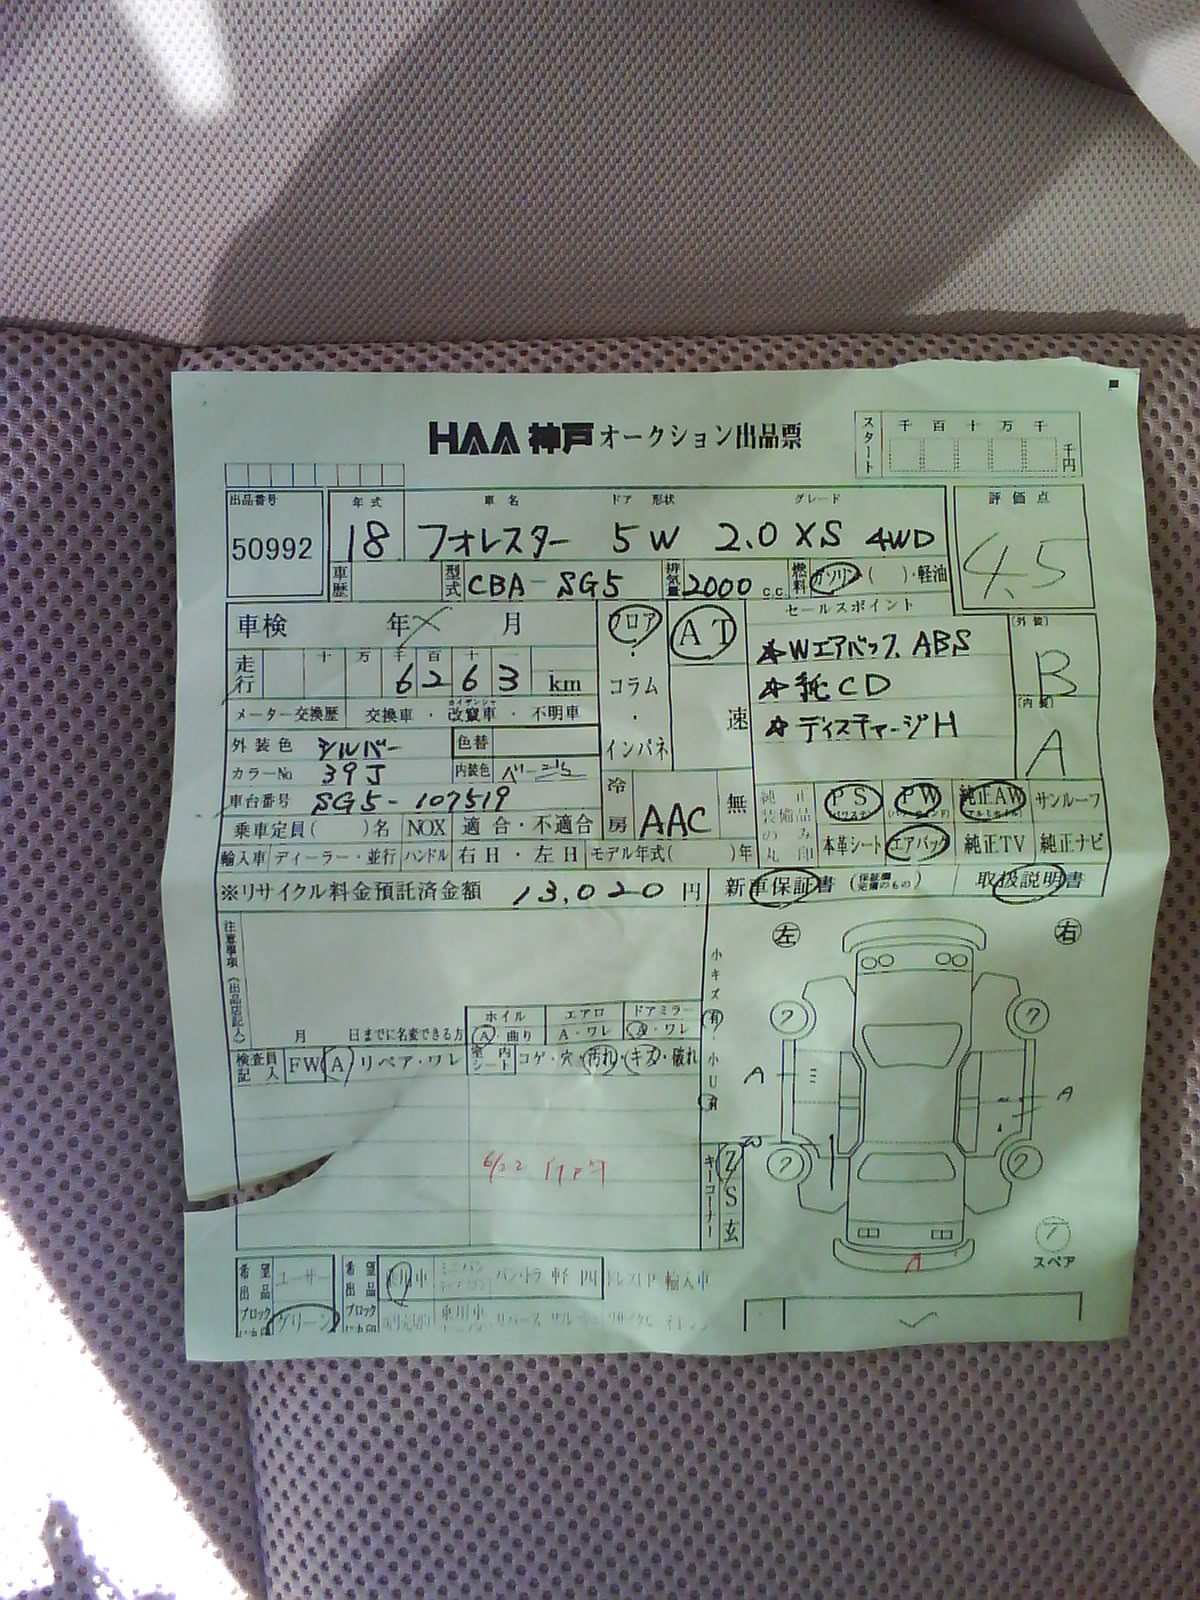 HAA 神戸 オークション出品票
スタート 千 百 十 万 千 千円
出品番号 年式 車名 ドア 形状 グレード 評価点
50992 18 フォレスター 5W 2.0 XS 4WD 4.5
車歴 型式 CBA-SG5 排気量 2000 cc 燃料 ガソリン ( )・軽油
車検 年 月 フロア AT セールスポイント (外装)
走行 十 万 千 百 十 一 コラム ☆Wエアバック ABS B
6263 km ☆純CD (内装)
メーター交換歴 交換車・改竄車・不明車 インパネ 速 ☆ディスチャージH A
外装色 シルバー 色替
カラーNo 39J 内装色 ベージュ 冷房 AAC 無
車台番号 SG5-107519 純正装備品のみ丸印 PS PW 純正AW サンルーフ
乗車定員( )名 NOX 適合・不適合 本革シート エアバック 純正TV 純正ナビ
輸入車 ディーラー・並行 ハンドル 右H・左H モデル年式( )年
※リサイクル料金預託済金額 13,020 円 新車保証書 取扱説明書
注意事項(出品店記入) 左 右
小キズ有・小U有
ホイル エアロ ドアミラー
月 日までに名変できる方 A・曲り A・ワレ A・ワレ
検査員記入 FW A リペア・ワレ 室内シート コゲ・穴・汚れ・キズ・破れ
7 7
A A
W
7 7
6/22
キーコーナー 7/S 玄
T
スペア
A
希望出品ブロック ユーザー 希望出品ブロック 輸入車
グリーン